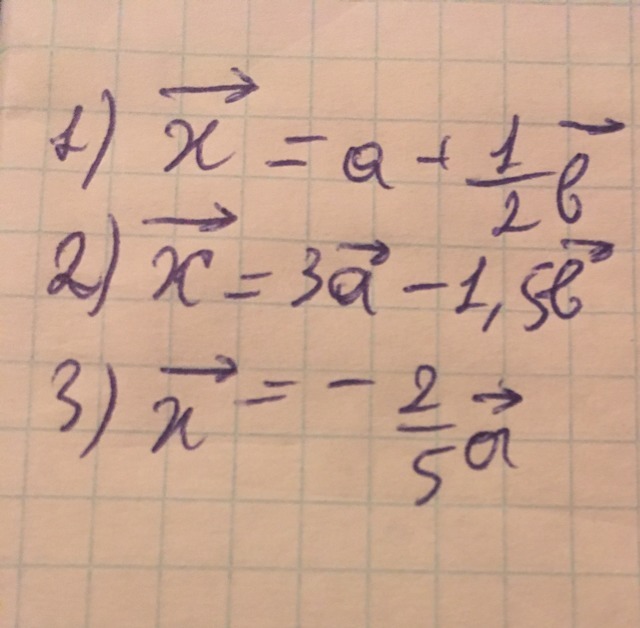 1) x⃗ = a + 1/2 b⃗
2) x⃗ = 3a⃗ - 1,5b⃗
3) x⃗ = - 2/5 a⃗